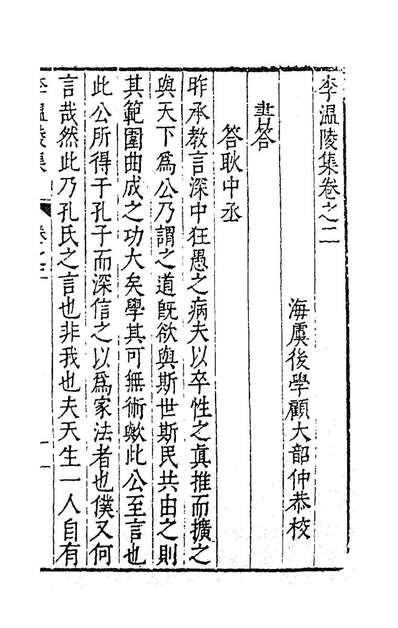 李溫陵集卷之二
海虞後學顧大韶仲恭校
書答
答耿中丞
昨承教言深中狂愚之病夫以卒性之眞推而擴之
與天下爲公乃謂之道旣欲與斯世斯民共由之則
其範圍曲成之功大矣學其可無術歟此公至言也
此公所得于孔子而深信之以爲家法者也僕又何
言哉然此乃孔氏之言也非我也夫天生一人自有
李溫陵集